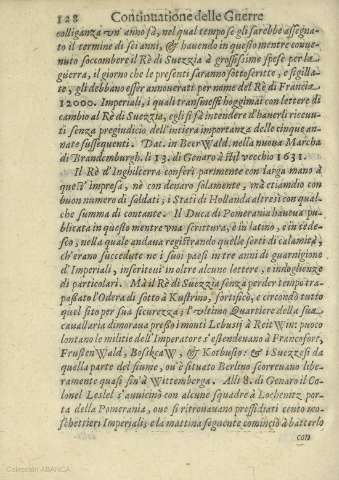 128 Continuatione delle Guerre
colliganza vn' anno sà, nel qual tempo se gli sarebbe assegna-
to il termine di sei anni, & hauendo in questo mentre conue-
nuto soccombere il Rè di Suezzia à grossissime spese per la
guerra, il giorno che le presenti saranno sottoscritte, e sigilla-
te, gli debbano esser annouerati per nome del Rè di Francia
12000. Imperiali, i quali transmesse hoggimai con lettere di
cambio al Rè di Suezzia, egli si sà intendere d'hauerli riceuu-
ti senza pregiudicio dell'intiera importanza delle cinque an-
nate sussequenti. Dat. in BeerWald. nella nuoua Marcha
di Brandemburgh. li 13. di Genaro à stil vecchio 1631.
Il Rè d'Inghilterra conferì parimente con larga mano à
quest' impresa, nè con denaro solamente, mà etiamdio con
buon numero di soldati, i Stati di Hollanda altresì con qual-
che summa di contante. Il Duca di Pomerania haueua pu-
blicata in questo mentre vna scrittura, e in latino, e in tede-
sco, nella quale andaua registrando quelle sorti di calamità,
ch'erano succedute ne i suoi paesi in tre anni di guarnigione
d'Imperiali, inseriteui in oltre alcune lettere, e indoglienze
di particolari. Mà il Rè di Suezzia senza perder tempo tra-
passato l'Odera di sotto à Kustrino, fortificò, e circondò tutto
quel sito per sua sicurezza; l'vltimo Quartiere della sua
cauallaria dimoraua presso i monti Lebusij à ReitWin: puoco
lontano le militie dell'Imperatore s'estendeuano à Francofort,
FrustenWald, BosikgaW, & Kotbusio: & i Suezzesi da
quella parte del fiume, ou' è situato Berlino scorreuano libe-
ramente quasi sin' à Wittemberga. Alli 8. di Genaro il Co-
lonel Leslel s'auuicinò con alcune squadre à Lochentz por-
ta della Pomerania, oue si ritrouauano pressidiati cento mo-
schettieri Imperiali, e la mattina seguente cominciò à batterlo
con
Colección ABANCA